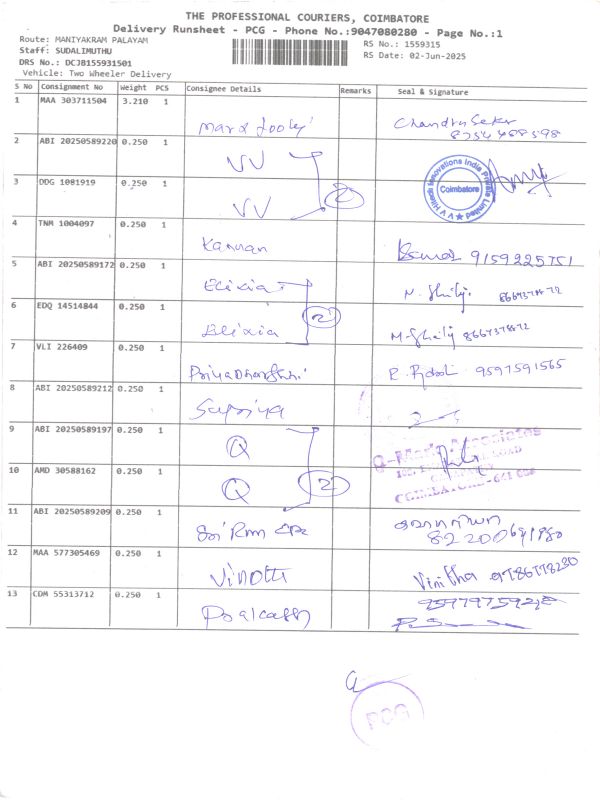 THE PROFESSIONAL COURIERS, COIMBATORE
Delivery Runsheet - PCG - Phone No.:9047080280 - Page No.:1
Route: MANIYAKRAM PALAYAM
RS No.: 1559315
Staff: SUDALIMUTHU
RS Date: 02-Jun-2025
DRS No.: DCJB155931501
Vehicle: Two Wheeler Delivery
S No Consignment No Weight PCS Consignee Details Remarks Seal & Signature
1 MAA 303711504 3.210 1
Chandra Seker
2 ABI 20250589220 0.250 1
VV
V V V Hitech Innovations India Private Limited
Coimbatore
3 DDG 1081919 0.250 1
VV 2
4 TNM 1004097 0.250 1
Kannan
9159225751
5 ABI 20250589172 0.250 1
Elixia
6 EDQ 14514844 0.250 1
Elixia 2
7 VLI 226409 0.250 1
PriyaDharshni
9597591565
8 ABI 20250589212 0.250 1
Supriya
9 ABI 20250589197 0.250 1
Q
Associates
10 AMD 30588162 0.250 1
Q 2
COIMBATORE-641
11 ABI 20250589209 0.250 1
Sai Ram
12 MAA 577305469 0.250 1
Vinoth
Vinitha
13 CDM 55313712 0.250 1
PCG